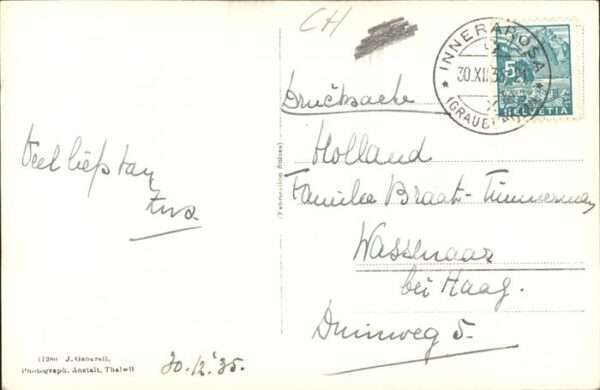 CH
INNERAROSA
30.XII.35.21
(GRAUBÜNDEN)
5
HELVETIA
Drucksache
Holland
Familie Braat-Timmerman
Wassenaar
bei Haag.
Duinweg 5.
Veel liefs van
30.12.'35.
J. Gaberell,
Photograph. Anstalt, Thalwil